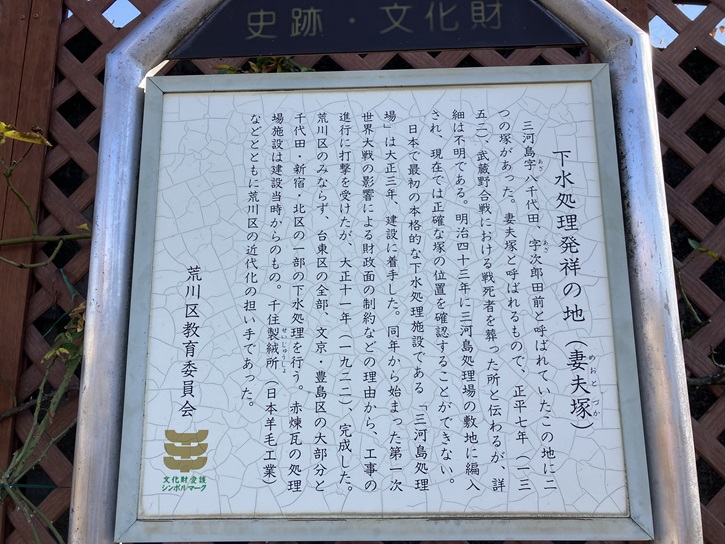 史跡・文化財
下水処理発祥の地(妻夫塚)
めおとづか
三河島字八千代田、字次郎田前と呼ばれていたこの地に二
あざ
あざ
つの塚があった。妻夫塚と呼ばれるもので、正平七年(一三
五二)、武蔵野合戦における戦死者を葬った所と伝わるが、詳
細は不明である。明治四十三年に三河島処理場の敷地に編入
され、現在では正確な塚の位置を確認することができない。
日本で最初の本格的な下水処理施設である「三河島処理
場」は大正三年、建設に着手した。同年から始まった第一次
世界大戦の影響による財政面の制約などの理由から、工事の
進行に打撃を受けたが、大正十一年(一九二二)、完成した。
荒川区のみならず、台東区の全部、文京・豊島区の大部分と
千代田・新宿・北区の一部の下水処理を行う。赤煉瓦の処理
場施設は建設当時からのもの。千住製絨所(日本羊毛工業)
せいじゅうしょ
などとともに荒川区の近代化の担い手であった。
荒川区教育委員会
文化財愛護
シンボルマーク